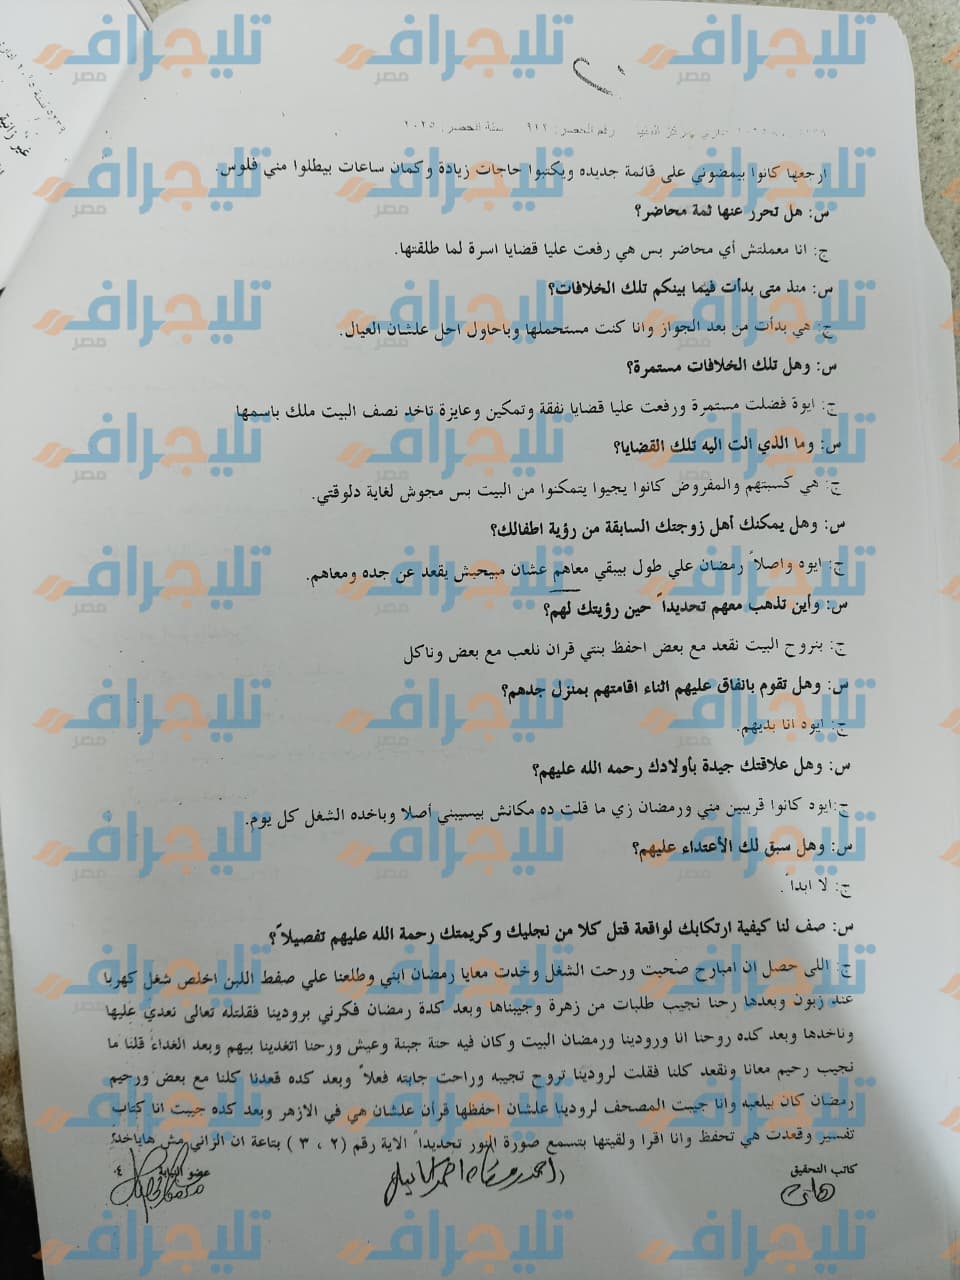 رقم الحصر: ٩١٢ سنة الحصر: ٢٠٢٥
ارجعها كانوا بيمضوني على قائمة جديده ويكتبوا حاجات زيادة وكمان ساعات بيطلوا مني فلوس.
س: هل تحرر عنها ثمة محاضر؟
ج: انا معملتش أي محاضر بس هي رفعت عليا قضايا اسرة لما طلقتها.
س: منذ متى بدأت فيما بينكم تلك الخلافات؟
ج: هي بدأت من بعد الجواز وانا كنت مستحملها وباحاول احل علشان العيال.
س: وهل تلك الخلافات مستمرة؟
ج: ايوة فضلت مستمرة ورفعت عليا قضايا نفقة وتمكين وعايزة تاخد نصف البيت ملك باسمها
س: وما الذي الت اليه تلك القضايا؟
ج: هي كسبتهم والمفروض كانوا يجيوا يتمكنوا من البيت بس مجوش لغاية دلوقتي.
س: وهل يمكنك أهل زوجتك السابقة من رؤية اطفالك؟
ج: ايوه واصلاً رمضان علي طول بيبقي معاهم عشان مبيحبش يقعد عن جده ومعاهم.
س: وأين تذهب معهم تحديداً حين رؤيتك لهم؟
ج: بنروح البيت نقعد مع بعض احفظ بنتي قران نلعب مع بعض وناكل
س: وهل تقوم بانفاق عليهم اثناء اقامتهم بمنزل جدهم؟
ج: ايوه انا بديهم.
س: وهل علاقتك جيدة بأولادك رحمه الله عليهم؟
ج:ايوه كانوا قريبين مني ورمضان زي ما قلت ده مكانش بيسيبني أصلا وباخده الشغل كل يوم.
س: وهل سبق لك الأعتداء عليهم؟
ج: لا ابداً.
س: صف لنا كيفية ارتكابك لواقعة قتل كلا من نجليك وكريمتك رحمة الله عليهم تفصيلاً؟
ج: اللى حصل ان امبارح صحيت ورحت الشغل وخدت معايا رمضان ابني وطلعنا علي صفط اللبن اخلص شغل كهربا
عند زبون وبعدها رحنا نجيب طلبات من زهرة وجيبناها وبعد كدة رمضان فكرني برودينا فقلتله تعالى نعدي عليها
وناخدها وبعد كده روحنا انا ورودينا ورمضان البيت وكان فيه حتة جبنة وعيش ورحنا اتغدينا بيهم وبعد الغداء قلنا ما
نجيب رحيم معانا ونقعد كلنا فقلت لرودينا تروح تجيبه وراحت جابته فعلاً وبعد كده قعدنا كلنا مع بعض ورحيم
رمضان كان بيلعبه وانا جيبت المصحف لرودينا علشان احفظها قرأن علشان هي في الازهر وبعد كده جيبت انا كتاب
تفسير وقعدت هي تحفظ وانا اقرا ولقيتها بتسمع صورة النور تحديداً الاية رقم (٢ ، ٣) بتاعة ان الزاني مش هاياخد
كاتب التحقيق
عضو النيابة
٤
تليجراف مصر